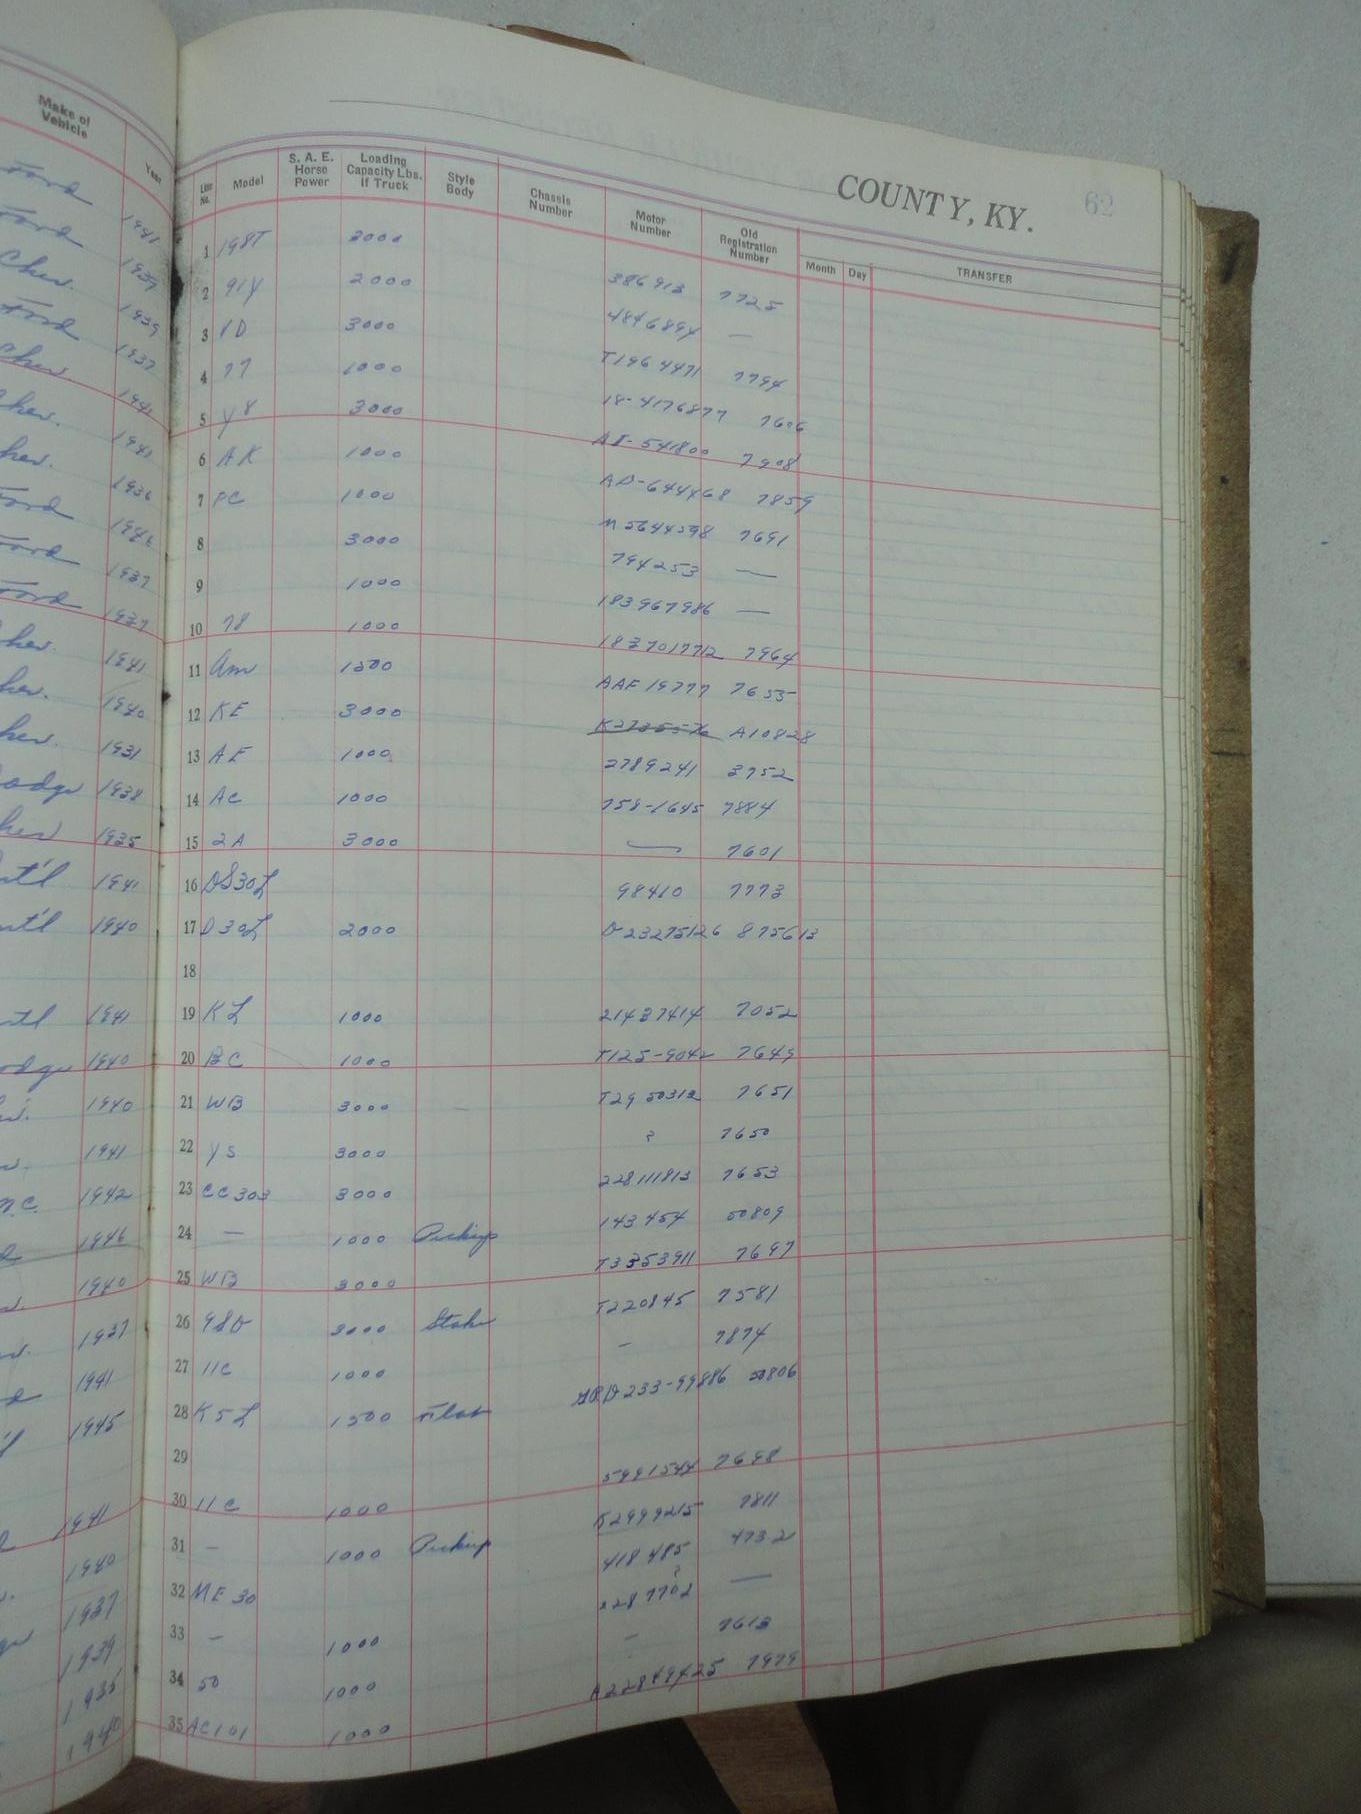 Make of Vehicle Year
Ford 1941
Ford 1939
Chev. 1939
Ford 1937
Chev 1941
Chev. 1941
1936
Ford 1946
Ford 1937
Ford 1937
1941
1940
1931
1938
1935
1941
1940
1941
1940
1940
1941
1942
1946
1940
1937
1941
1945
1941
1940
1937
1939
1935
1940
COUNTY, KY. 62
Line No. Model S. A. E. Horse Power Loading Capacity Lbs. If Truck Style Body Chassis Number Motor Number Old Registration Number Month Day TRANSFER
1 198T 3000 386913 7725
2 91Y 2000 4846894 —
3 VD 3000 T1964471 7794
4 77 1000 18-4176877 7606
5 Y8 3000 AI-541800 7908
6 AK 1000 AD-644468 7859
7 PC 1000 M5644598 7691
8 3000 794253 —
9 1000 183967986 —
10 78 1000 1837017712 7964
11 Am 1500 AAF19777 7655
12 KE 3000 A10828
13 AE 1000 2789241 3752
14 AC 1000 758-1645 7884
15 2A 3000 — 7601
16 DS30L 98410 7773
17 D30L 2000 D23275126 875613
18
19 KL 1000 21437414 7052
20 BC 1000 T125-9042 7649
21 WB 3000 T2950312 7651
22 YS 3000 ? 7650
23 CC303 3000 228111813 7653
24 — 1000 Pickup 143454 50809
25 WB 3000 T3353911 7697
26 98D 3000 Stake T220845 7581
27 11C 1000 — 7874
28 K5L 1500 Flat 50806
29 5991544 7698
30 11C 1000 K2999215 7811
31 — 1000 Pickup 418485 4732
32 ME30 —
33 — 1000 — 7613
34 50 1000 A22849425 7979
35 AC101 1000